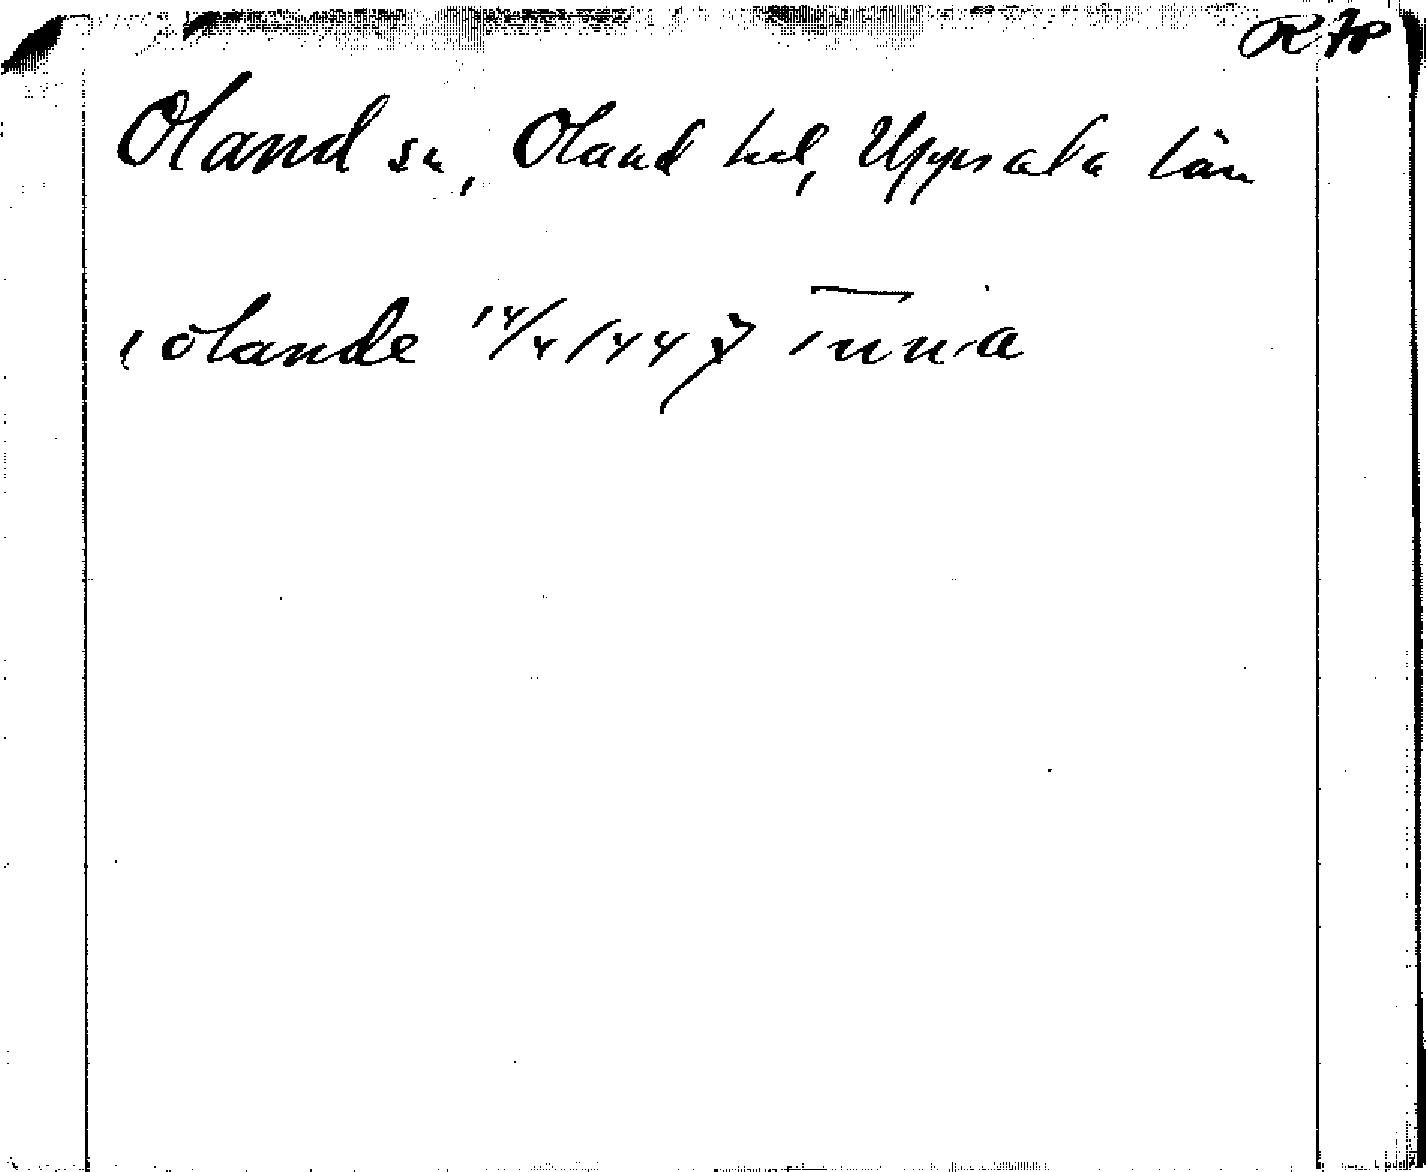 RAp
Oland sn, Oland hd, Uppsala län
i ölande 14/4 1447